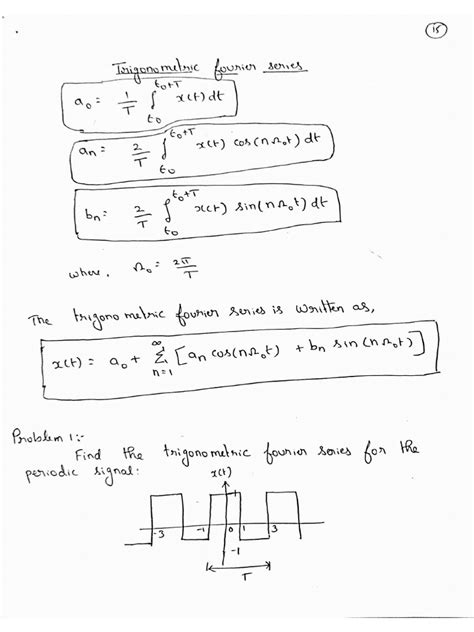 15
Trigonometric fourier series
a₀ = 1/T ∫_{t₀}^{t₀+T} x(t) dt
aₙ = 2/T ∫_{t₀}^{t₀+T} x(t) cos(nΩ₀t) dt
bₙ = 2/T ∫_{t₀}^{t₀+T} x(t) sin(nΩ₀t) dt
where, Ω₀ = 2π/T
The trigonometric fourier series is written as,
x(t) = a₀ + Σ_{n=1}^{∞} [aₙ cos(nΩ₀t) + bₙ sin(nΩ₀t)]
Problem 1:-
Find the trigonometric fourier series for the
periodic signal:
x(t)
1
-3 -1 0 1 3
-1
T